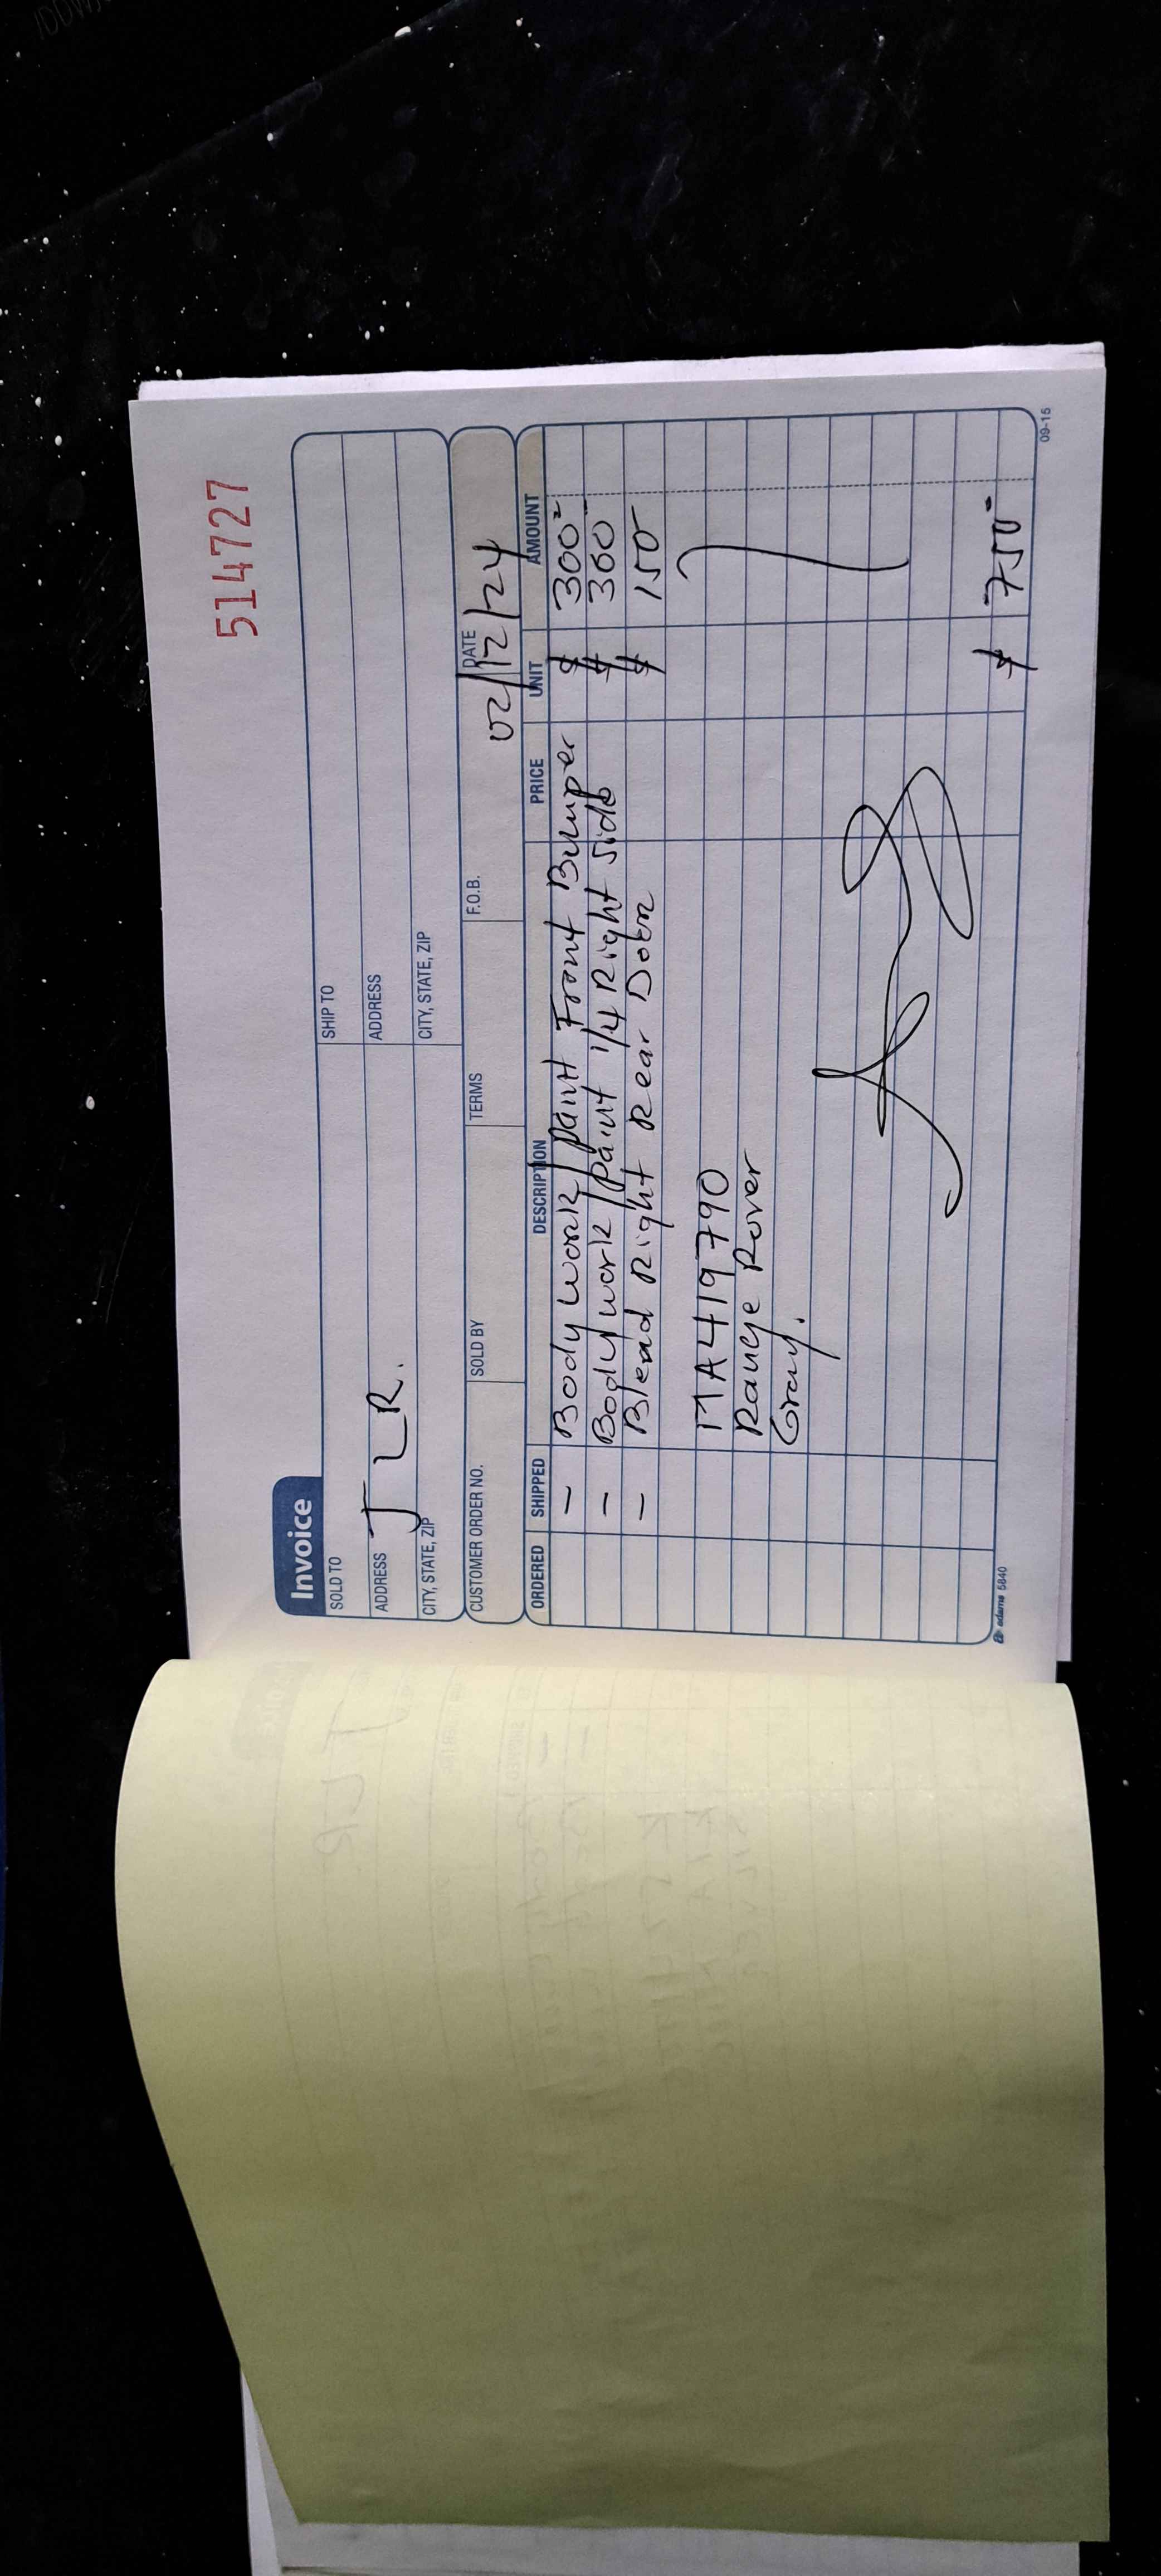 514727
Invoice
SOLD TO
SHIP TO
ADDRESS
ADDRESS
JLR.
CITY, STATE, ZIP
CITY, STATE, ZIP
CUSTOMER ORDER NO. SOLD BY TERMS F.O.B. DATE
02/12/24
ORDERED SHIPPED DESCRIPTION PRICE UNIT AMOUNT
- Body work/paint Front Bumper $ 300
- Body work/paint 1/4 Right Side $ 300
- Blend Right Rear Door $ 150
MA419790
Range Rover
Gray.
$ 750
adams 5840
09-15